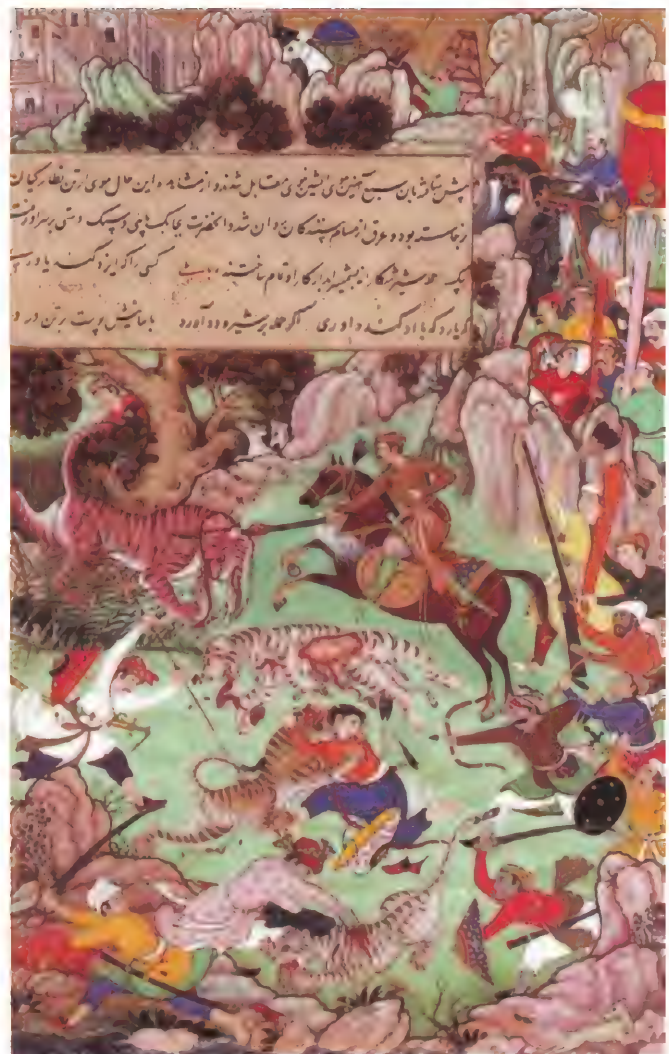 پیش شتافته بآن سبع آهنین موی شیر خوی مقابل شدند و از مشاهده این حال موی از تن نظارکیان
برخاسته بود و عرق از مسام بینندکان روان شد آنحضرت بچابک پایی و سبک دستی بر سر او رفته
بیک حمله شیر شکار بشمشیر ابدار کار او تمام ساختند کسی را که ایزد کند یاوری
که یارد که با او کند داوری اکر حمله بر شیر ود آورد پوست بر تن درد